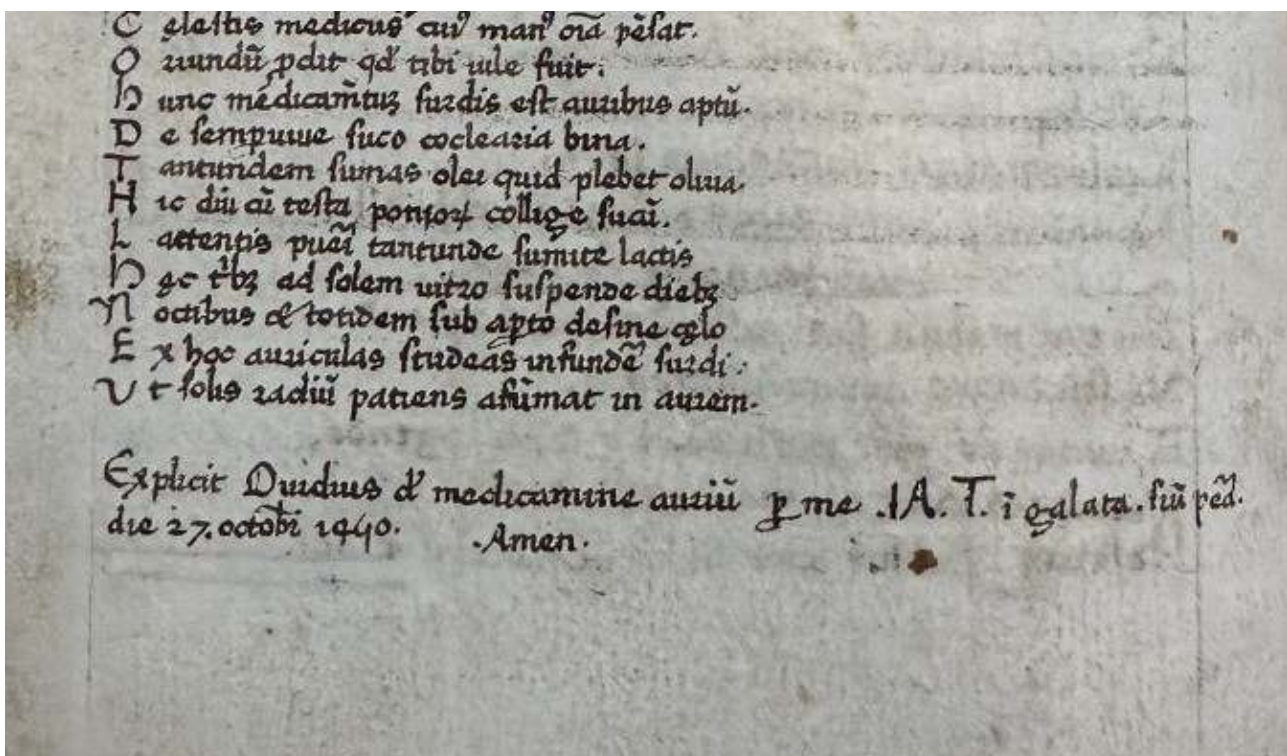 C elestis medicus cui᷒ man᷒ oīa pēsat.
O riundū ꝓdit qd̄ tibi uile fuit.
h unc medicam̄tuꝫ surdis est auribus aptū.
D e sempuiue suco coclearia bina.
T antundem sumas olei quid plebet oliua.
H ic diu cū testa collige sucū.
L attentis tantunde sumite lactis
h ęc tͥbꝫ ad solem uitro suspende diebꝫ
N octibus & totidem sub apto desine cęlo
E x hoc auriculas studeas infundē surdi.
V t solis radiū patiens in aurem.
Explicit Ouidius d̄ medicamine auriū ꝑ me .IA. T. ī galata.
die 27. octobī 1440. .Amen.